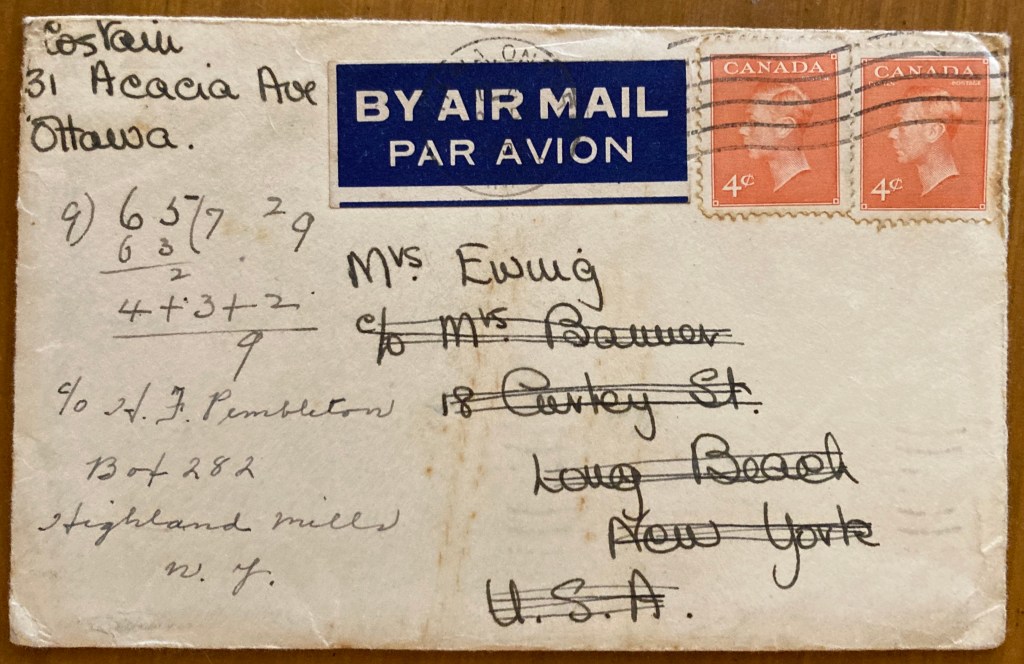 Costain
31 Acacia Ave
Ottawa.
BY AIR MAIL
PAR AVION
CANADA
4¢
CANADA
4¢
9) 65 (7 2 9
63
2
4+3+2
9
Mrs. Ewing
c/o Mrs Banner
18 Curley St.
Long Beach
New York
U.S.A.
c/o H. F. Pembleton
Box 282
Highland Mills
N. Y.